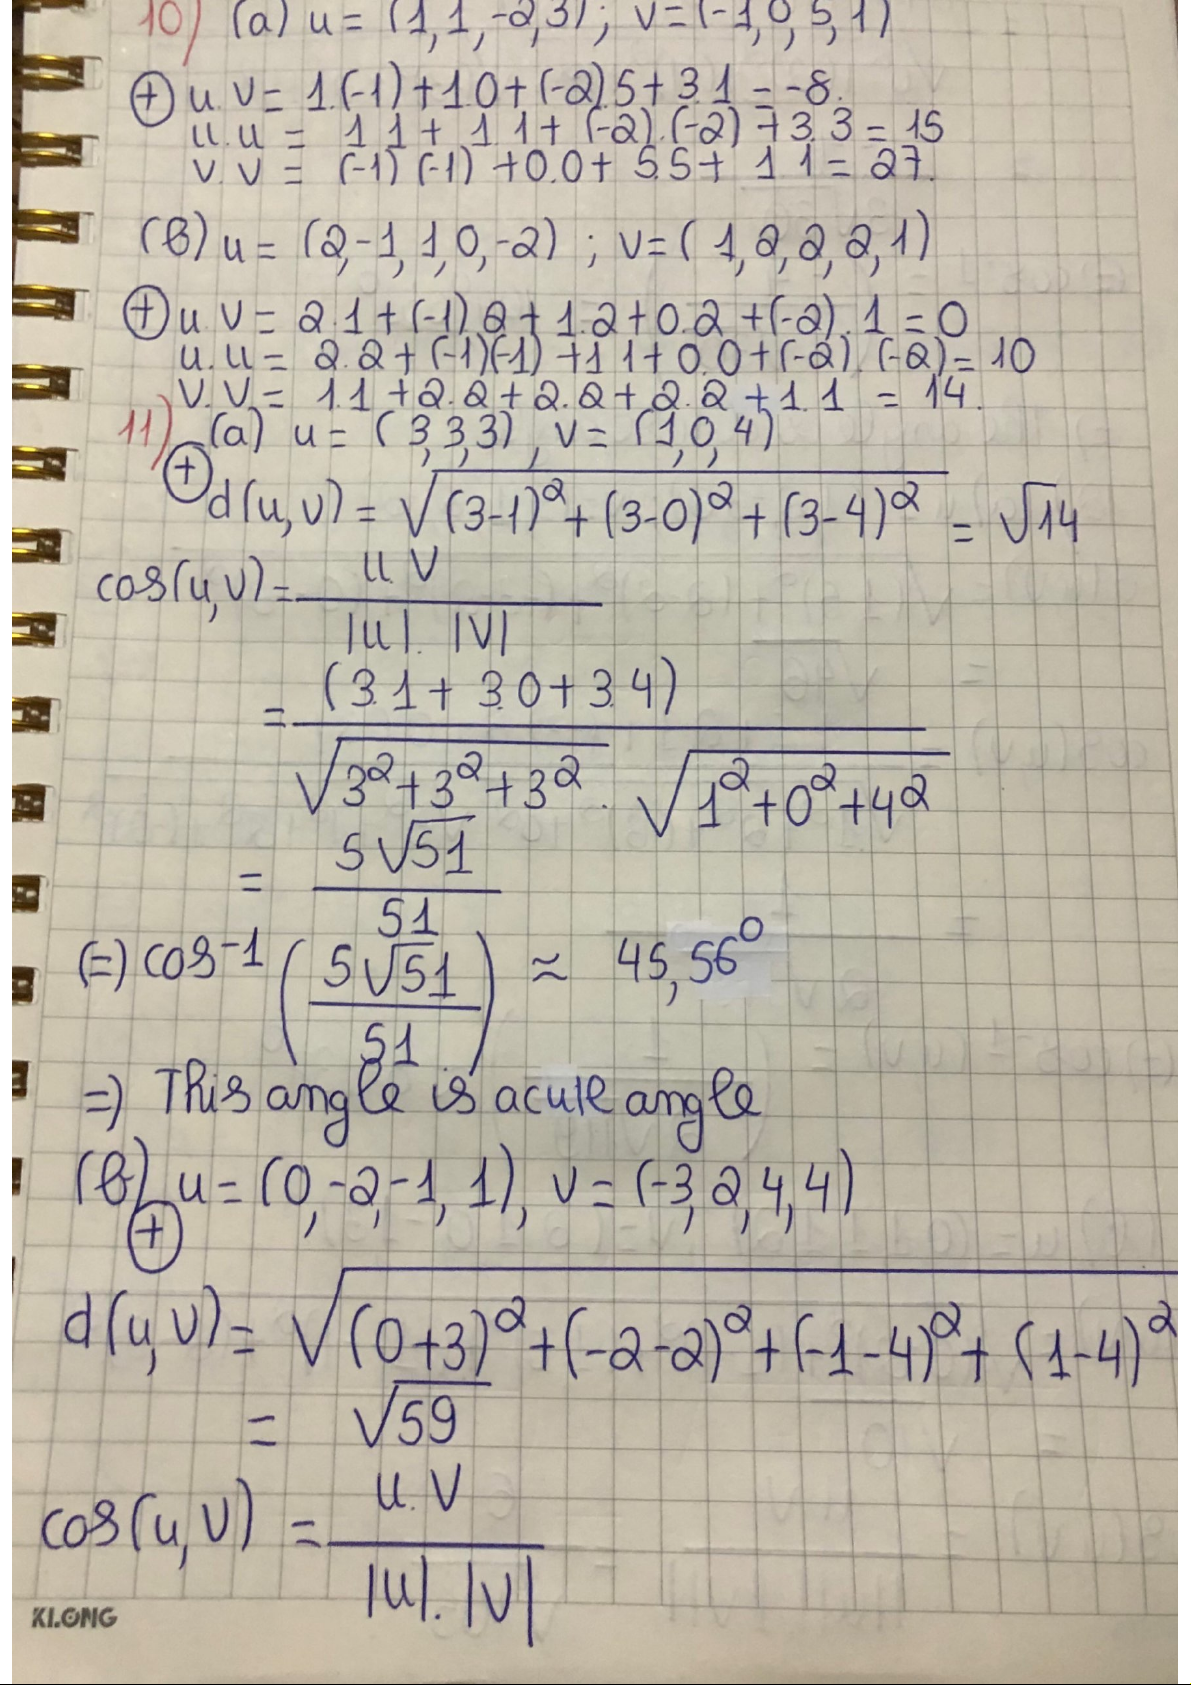 10) (a) u = (1, 1, -2, 3) ; v = (-1, 0, 5, 1)
⊕ u.v = 1.(-1) + 1.0 + (-2).5 + 3.1 = -8.
u.u = 1.1 + 1.1 + (-2).(-2) + 3.3 = 15
v.v = (-1)(-1) + 0.0 + 5.5 + 1.1 = 27.
(b) u = (2, -1, 1, 0, -2) ; v = (1, 2, 2, 2, 1)
⊕ u.v = 2.1 + (-1).2 + 1.2 + 0.2 + (-2).1 = 0
u.u = 2.2 + (-1)(-1) + 1.1 + 0.0 + (-2).(-2) = 10
v.v = 1.1 + 2.2 + 2.2 + 2.2 + 1.1 = 14.
11) (a) u = (3, 3, 3), v = (1, 0, 4)
⊕ d(u,v) = √((3-1)² + (3-0)² + (3-4)²) = √14
cos(u,v) = u.v / |u|.|v|
= (3.1 + 3.0 + 3.4) / √(3² + 3² + 3²) . √(1² + 0² + 4²)
= 5√51 / 51
(=) cos⁻¹ (5√51 / 51) ≈ 45,56⁰
=) This angle is acute angle
(b) u = (0, -2, -1, 1), v = (-3, 2, 4, 4)
⊕
d(u,v) = √((0+3)² + (-2-2)² + (-1-4)² + (1-4)²
= √59
cos(u,v) = u.v / |u|.|v|
KLONG